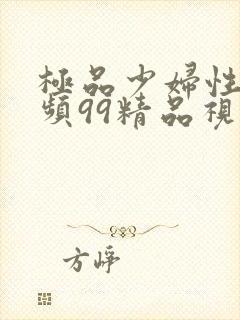 極品少婦性
頻99精品視
方崢